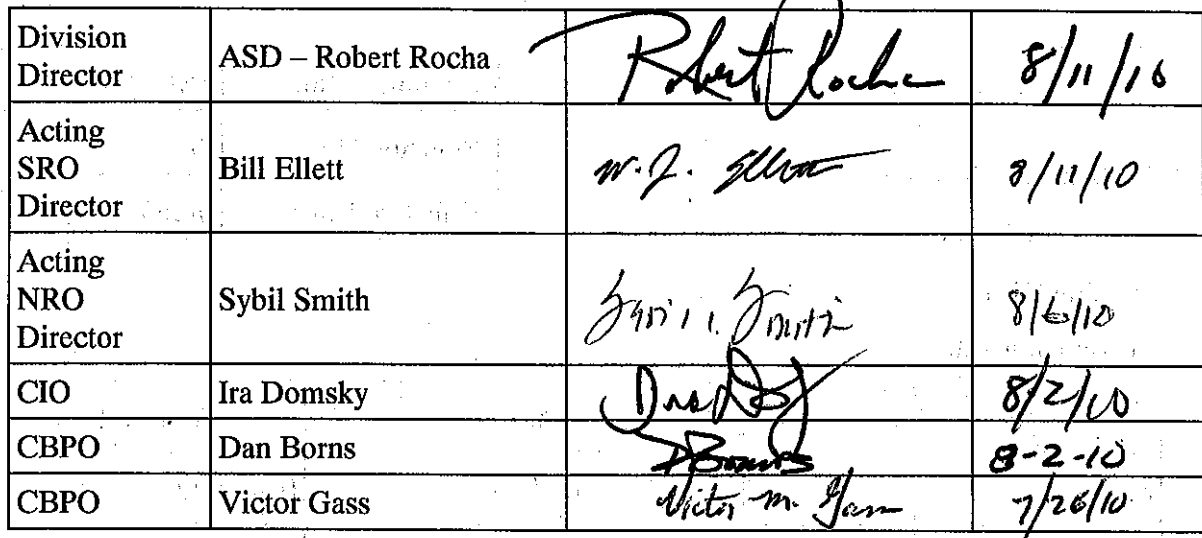 Division
Director
ASD – Robert Rocha
Robert Rocha
8/11/10
Acting
SRO
Director
Bill Ellett
W. J. Ellett
8/11/10
Acting
NRO
Director
Sybil Smith
Sybil Smith
8/6/10
CIO
Ira Domsky
8/2/10
CBPO
Dan Borns
D Borns
8-2-10
CBPO
Victor Gass
Victor M. Gass
7/26/10